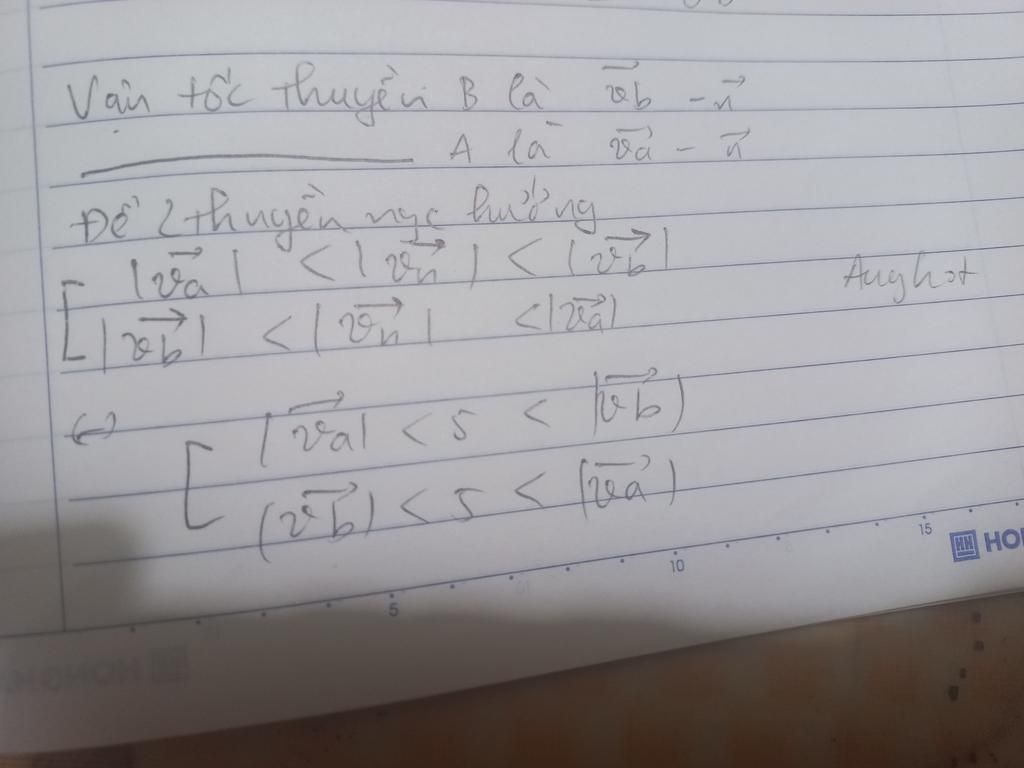 Vận tốc thuyền B là v⃗b - n⃗
A là v⃗a - n⃗
Để 2 thuyền ngc hướng
|v⃗a| < |v⃗n| < |v⃗b|
|v⃗b| < |v⃗n| < |v⃗a|
↔
|v⃗a| < 5 < |v⃗b|
|v⃗b| < 5 < |v⃗a|
5 10 15